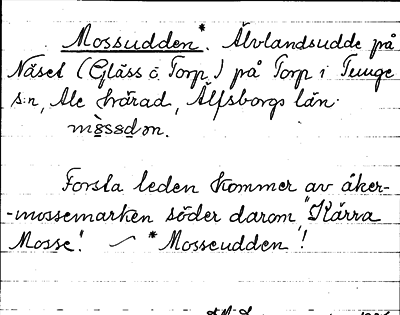 Mossudden*. Älvlandsudde på
Näset (Gläss o. Torp) på Torp i Tunge
s:n, Ale härad, Älfsborgs län.
mòssdən.
Första leden kommer av åker-
-mossemarken söder darom "Kärra
Mosse". ~ *Mosseudden!